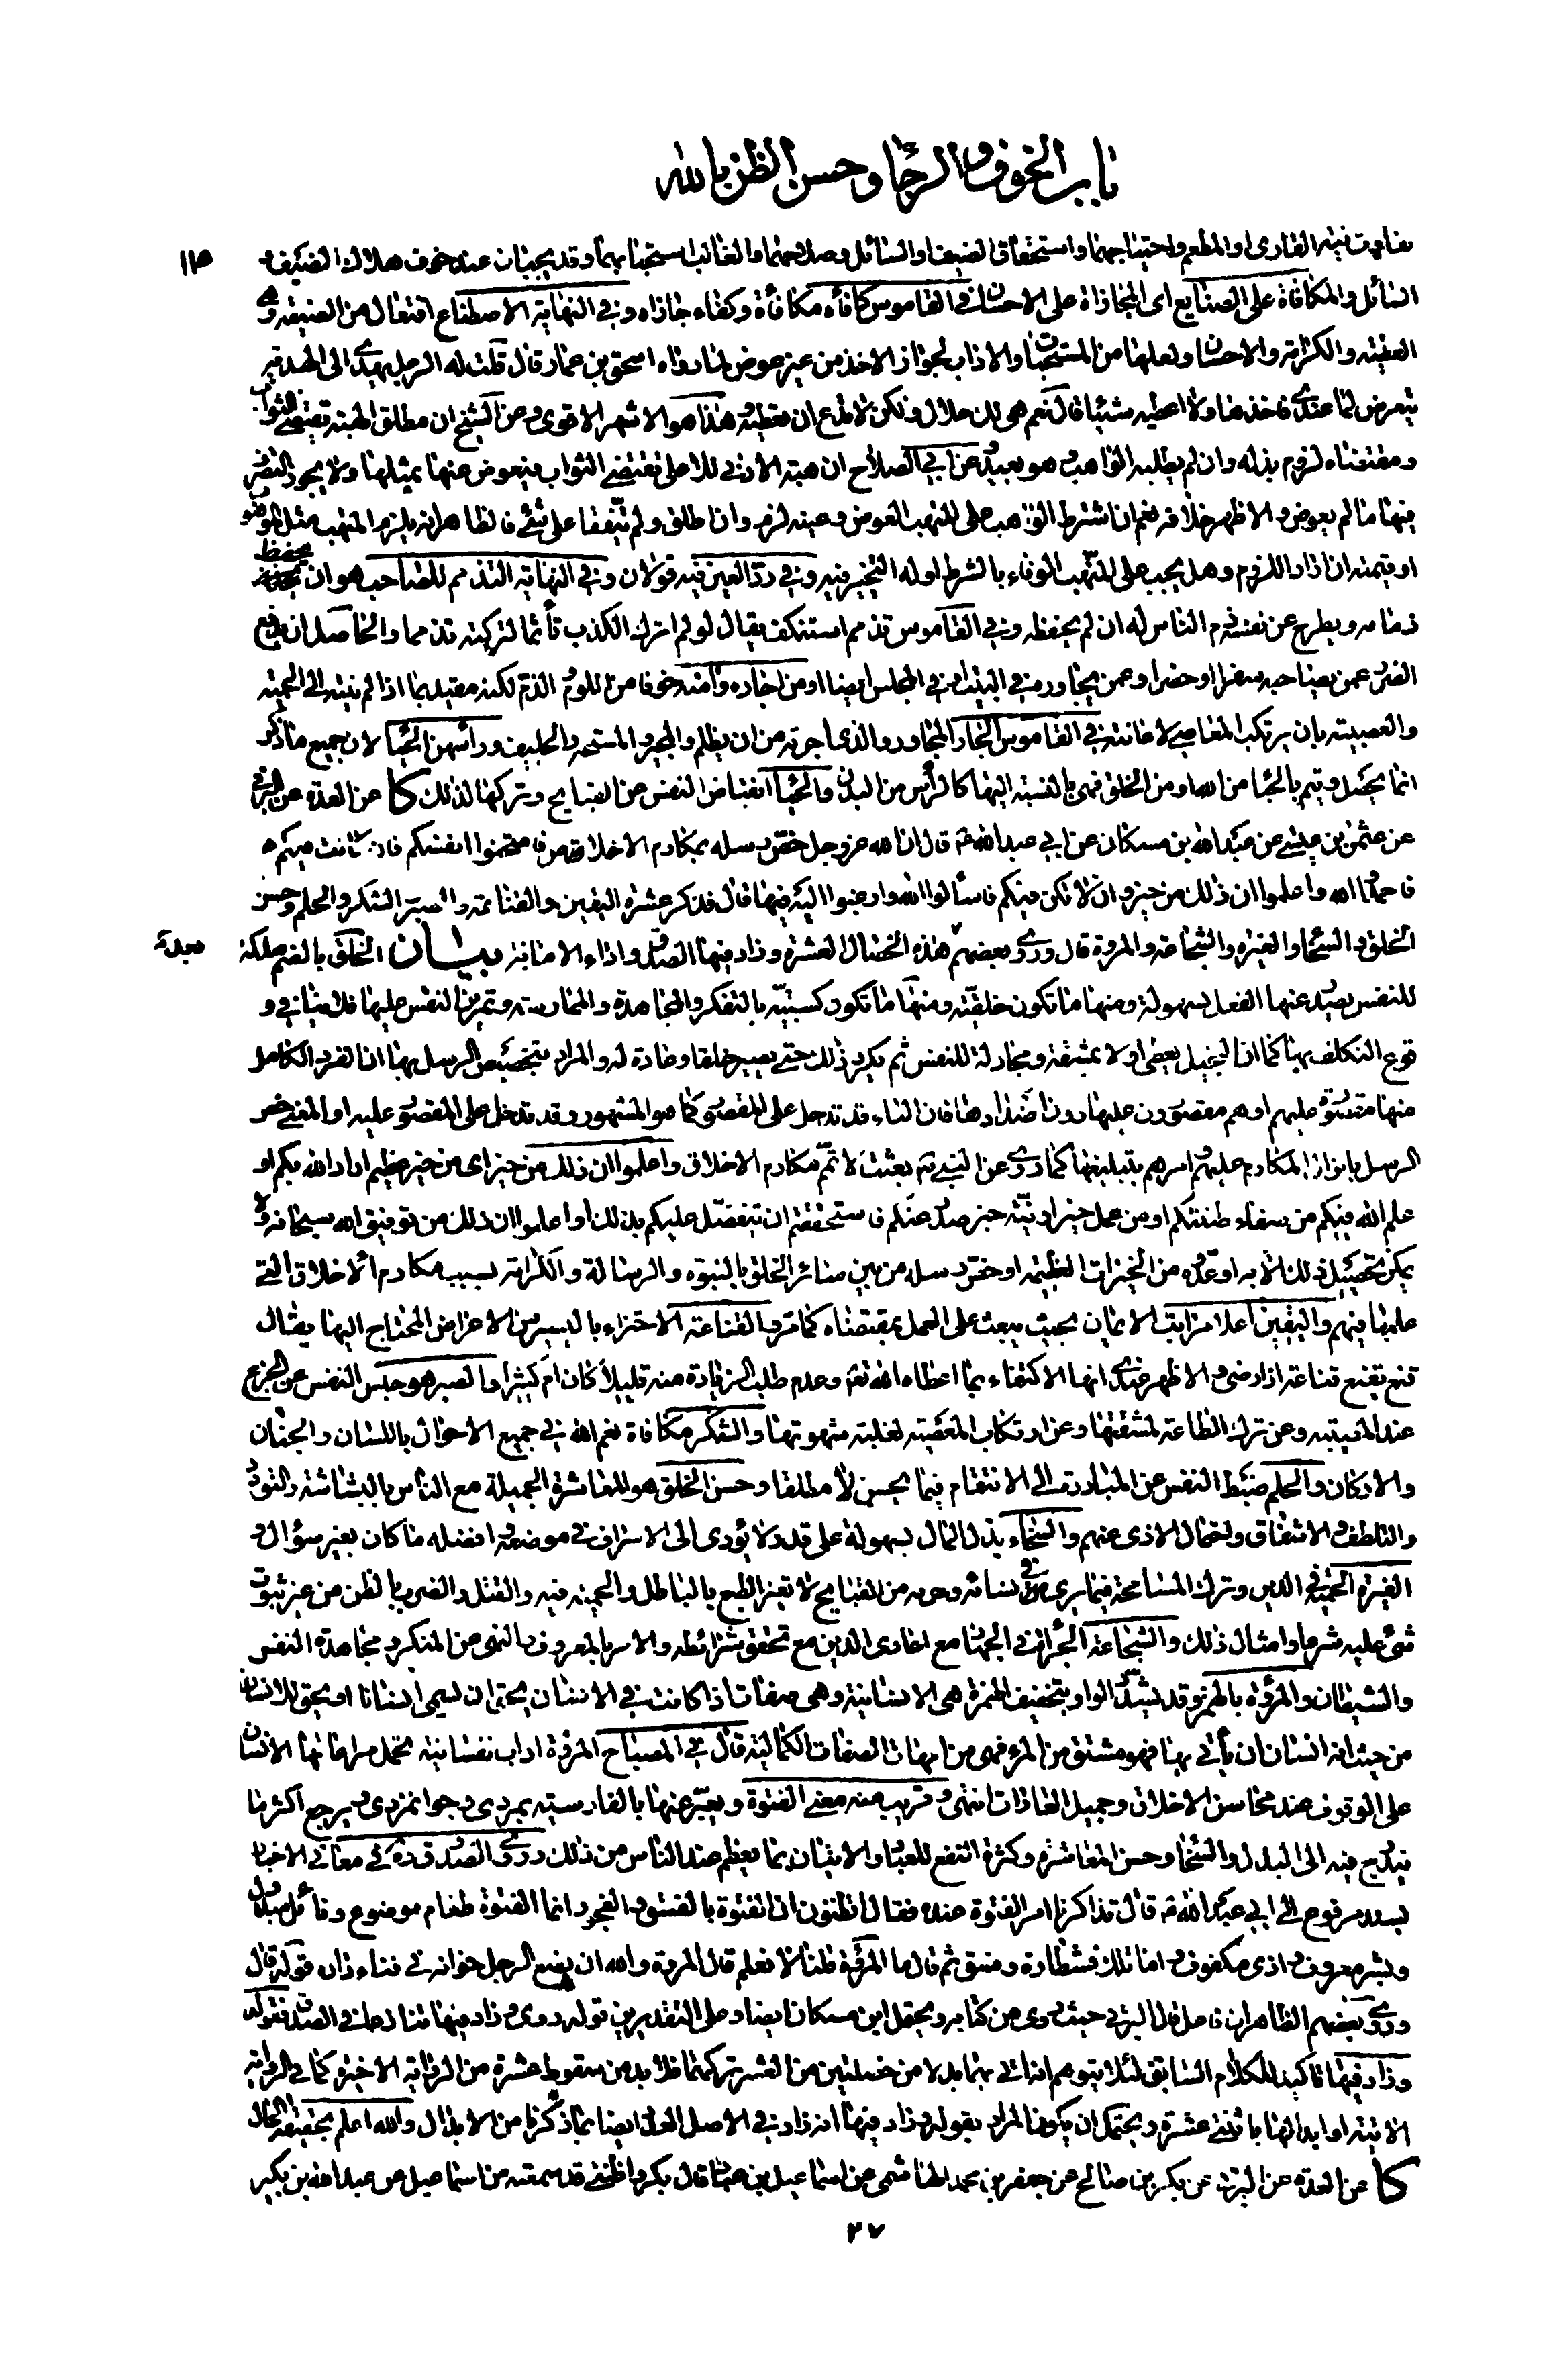 باب الخوف والرجا وحسن الظن بالله
١١٥
تفاوت نية القاري او المطعم واحتياجهما واستحقاق الضيف والسائل وصلاحهما والغالب استحبابهما وقد يجبان عند خوف هلاك الضيف و
السائل والمكافاة على الصنايع اى المجازاة على الاحسان فى القاموس كافأه مكافأة وكفاء جازاه وفي النهاية الاصطناع افتعال من الصنيعة وهى
العطية والكرامة والاحسان ولعلها من المستحبات والاداب لجواز الاخذ من غير عوض لما رواه اسحق بن عمار قال قلت له الرجل يهدى الى الهدية
يتعرض لما عندى فاخذها ولا اعطيه شيئا قال نعم هى لك حلال ولكن لا تدع ان تعطيه هذا هو الاشهر الاقوى وعن الشيخ ان مطلق الهبة تقتضى الثواب
ومقتضاه لزوم بذله وان لم يطلبه الواهب وهو بعيد وعن ابي الصلاح ان هبة الادنى للاعلى تقتضى الثواب فيعوض عنها بمثلها ولا يجوز التصرف
فيها ما لم يعوض والاظهر خلافه نعم ان اشترط الواهب على المتهب العوض وعينه لزم وان اطلق ولم يتفقا على شئ فالظاهر انه يلزم المتهب مثل الموهوب
او قيمته ان اراد اللزوم وهل يجب على المتهب الوفاء بالشرط او له التخيير فيه وفي رد العين فيه قولان وفي النهاية التذمم للصاحب هو ان يحفظ
ذمامه ويطرح عن نفسه ذم الناس له ان لم يحفظه وفي القاموس تذمم استنكف يقال لو لم اترك الكذب تأثما لتركته تذمما والحاصل ان يدفع
الضرر عمن يصاحبه سفرا او حضرا وعمن يجاوره في البيت او في المجلس ايضا او من اجاره وآمنه خوفا من اللوم والذم لكنه مقيد بما اذا لم ينته الى الحمية
والعصبية بان يرتكب المعاصى لاعانته في القاموس الجار المجاور والذى اجرته من ان يظلم والمجير والمستجير والحليف وراسهن الحيا لان جميع ما ذكر
انما يحصل ويتم بالحيا من الله او من الخلق فهى بالنسبة اليها كالرأس من البدن والحيا انقباض النفس عن القبايح وتركها لذلك كا عن العدة عن البرقي
عن عثمن بن عيسى عن عبد الله بن مسكان عن ابي عبد الله ع قال ان الله عز وجل خص رسله بمكارم الاخلاق فامتحنوا انفسكم فان كانت فيكم
فاحمدوا الله واعلموا ان ذلك من خير وان لا تكن فيكم فاسألوا الله وارغبوا اليه فيها قال فذكر عشرة اليقين والقناعة والصبر والشكر والحلم وحسن
الخلق والسخا والغيرة والشجاعة والمروة قال وروى بعضهم هذه الخصال العشرة وزاد فيها الصدق واداء الامانة بيان الخلق بالضم ملكة
للنفس يصدر عنها الفعل بسهولة ومنها ما تكون خلقية ومنها ما تكون كسبية بالتفكر والمجاهدة والممارسة وتمرين النفس عليها فلا ينافي و
قوع التكلف بها كما ان البخيل يعطى اولا بمشقة ومجادلة للنفس ثم يكرر ذلك حتى يصير خلقا وعادة له والمراد بتخصيص الرسل بها ان الفرد الكامل
منها مقصورة عليهم او هم مقصورون عليها دون اضدادها فان الباء قد تدخل على المقصور كما هو المشهور وقد تدخل على المقصور عليه او المعنى خص
الرسل بانزال المكارم عليهم وامرهم بتبليغها كما روى عن النبي ص بعثت لاتمم مكارم الاخلاق واعلموا ان ذلك من خير اى من خير عظيم اراد الله بكم او
علم الله فيكم من صفاء طينتكم او من عمل خير او نية خير صدر عنكم فاستحققتم ان يتفضل عليكم بذلك او اعلموا ان ذلك من توفيق الله سبحانه ولا
يمكن تحصيل ذلك الا به او عدوه من الخيرات العظيمة او خص رسله من بين سائر الخلق بالنبوة والرسالة والكرامة بسبب مكارم الاخلاق التى
علمها فيهم واليقين اعلا مراتب الايمان بحيث يبعث على العمل بمقتضاه كما مر والقناعة الاجتزاء باليسير من الاعراض المحتاج اليها يقال
قنع يقنع قناعة اذا رضى والاظهر عندى انها الاكتفاء بما اعطاه الله تعالى وعدم طلب الزيادة منه قليلا كان ام كثيرا والصبر هو حبس النفس عن الجزع
عند المصيبة وعن ترك الطاعة لمشقتها وعن ارتكاب المعصية لغلبة شهوتها والشكر مكافاة نعم الله في جميع الاحوال باللسان والجنان
والاركان والحلم ضبط النفس عن المبادرة الى الانتقام فيما يحسن لا مطلقا وحسن الخلق هو المعاشرة الجميلة مع الناس بالبشاشة والتودد
والتلطف والاشفاق واحتمال الاذى عنهم والسخاء بذل المال بسهولة على قدر لا يؤدى الى الاسراف في موضعه وافضله ما كان بغير سؤال و
الغيرة الحمية في الدين وترك المسامحة فيما يرى في نسائه وحرمه من القبايح لا تغير الطبع بالباطل والحمية فيه والقتل والضرب بالظن من غير ثبوت
شئ عليه شرعا وامثال ذلك والشجاعة الجرأة في الجهاد مع اعادى الدين مع تحقق شرائطه والامر بالمعروف والنهى عن المنكر ومجاهدة النفس
والشيطان والمروة بالهمز وقد يشدد الواو بتخفيف الهمزة هى الانسانية وهى صفات اذا كانت في الانسان يحق ان يسمى انسانا او يحق للانسان
من حيث انه انسان ان يأتى بها فهو مشتق من المرء فهى من امهات الصفات الكمالية قال في المصباح المروة اداب نفسانية تحمل مراعاتها الانسان
على الوقوف عند محاسن الاخلاق وجميل العادات انتهى وقريب منه معنى الفتوة ويعبر عنها بالفارسية بمردى وجوانمردى ويرجع اكثرها
يندرج فيه الى البذل والسخا وحسن المعاشرة وكثرة النفع للعباد والاتيان بما يعظم عند الناس من ذلك وروى الصدوق ره في معاني الاخبار
بسند مرفوع الى ابي عبد الله ع قال تذاكرنا امر الفتوة عنده فقال اتظنون ان الفتوة بالفسق والفجور انما الفتوة طعام موضوع ونائل مبذول
وبشر معروف واذى مكفوف واما تلك فشطارة وفسق ثم قال ما المروة قلنا لا نعلم قال المروة والله ان يضع الرجل خوانه في فناء داره قوله قال
وروى بعضهم الظاهر ان فاعل قال البرقي حيث روى من كتابه ويحتمل ابن مسكان ايضا وعلى التقديرين قوله روى وزاد فيها تنازعا في الصدق فقوله
وزاد فيها تأكيد للكلام السابق لئلا يتوهم انه اتى بهما بدلا من خصلتين من العشر تركهما فلا بد من سقوط عشرة من الرواية الاخيرة كما في الرواية
الاتية او ابدالها باثنتى عشرة ويحتمل ان يكون المراد بقوله وزاد فيها انه زاد في الاصل العدد ايضا بما ذكرنا من الابدال والله اعلم بحقيقة الحال
كا عن العدة عن البرقي عن بكر بن صالح عن جعفر بن محمد الهاشمى عن اسماعيل بن عباد قال بكر واظننى قد سمعته من اسماعيل عن عبد الله بن بكير
٢٧